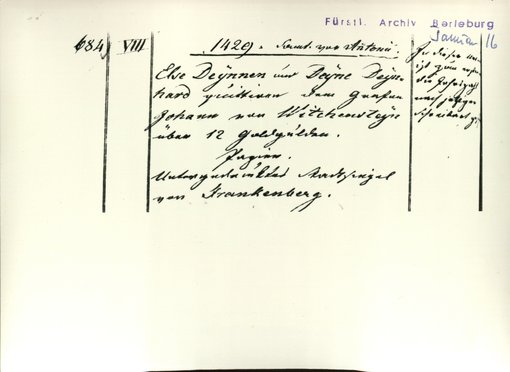 Fürstl. Archiv Berleburg
Januar 16
684 VIII 1429. Samt. vor Antonii.
Else Deÿnnen und Deÿne Deÿn-
hard quittiren dem Grafen
Johann von Witchensteÿn
über 12 Goldgulden.
Papier.
Untergedrücktes Stadtsiegel
von Frankenberg.
In dieser
ist zum
die
nach